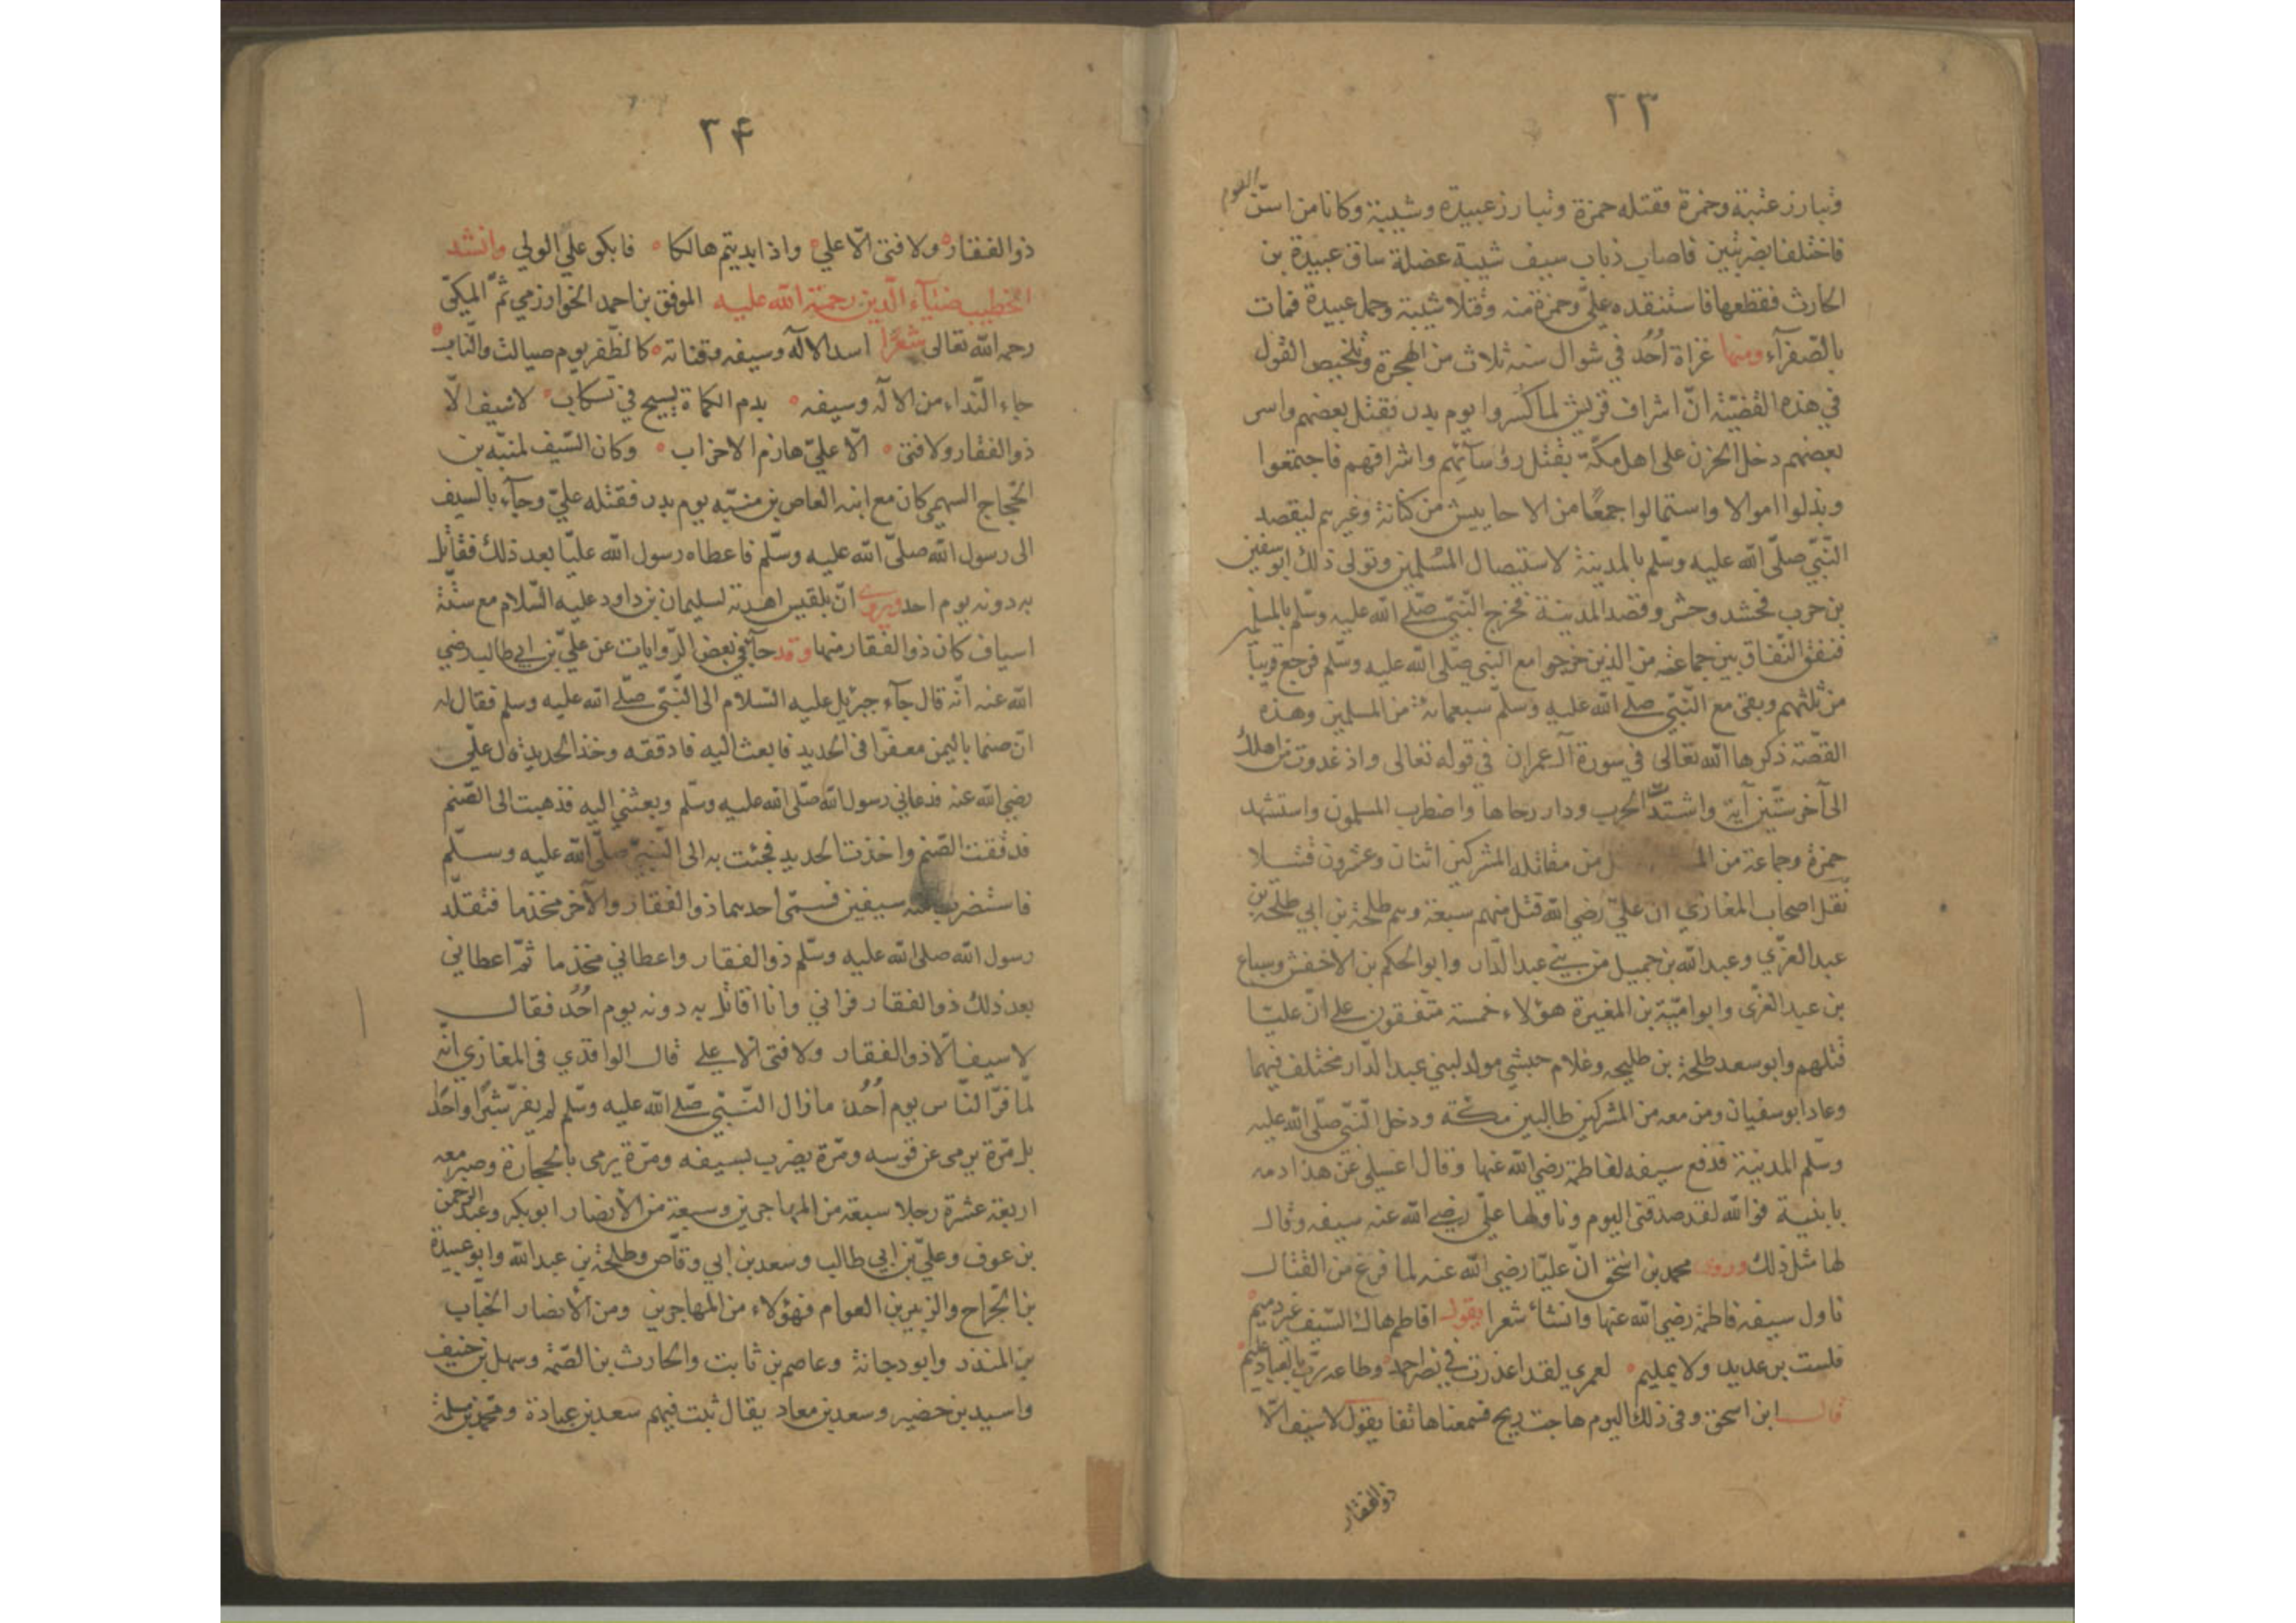 ٣٣
وتبارز عتبة وحمزة فقتله حمزة وتبارز عبيدة وشيبة وكانا من اسنّ القوم
فاختلفا بضربتين فاصاب ذباب سيف شيبة عضلة ساق عبيدة بن
الحارث فقطعها فاستنقده عليّ وحمزة منه وقتلا شيبة وحمل عبيدة فمات
بالصّفرآء ومنها غزاة اُحُد في شوال سنه ثلاث من الهجرة وتلخيص القول
في هذه القضيّة انّ اشراف قريش لما كسروا يوم بدر فقتل بعضهم واسر
بعضهم دخل الحزن على اهل مكّة بقتل رؤسآئهم واشرافهم فاجتمعوا
وبذلوا اموالا واستمالوا جمعًا من الاحابيش من كنانة وغيرهم ليقصد
النّبيّ صلّى الله عليه وسلّم بالمدينة لاستيصال المسُلمين وتولى ذلك ابوسفين
بن حرب فحشد وحشر وقصد المدينة فخرج النّبيّ صلّى الله عليه وسلّم بالمسلمين
فنفق النّفاق بين جماعة من الذين خرجوا مع النّبي صلّى الله عليه وسلّم فرجع قريباً
من ثلثهم وبقى مع النّبيّ صلى الله عليه وسلّم سبعمائة من المسلمين وهذه
القصّة ذكرها الله تعالى في سورة آل عمران في قوله تعالى واذ غدوت من اهلك
الى آخر ستّين آية واشتدّت الحرب ودار رحاها واضطرب المسلمون واستشهد
حمزة وجماعة من المـ ل من مقاتله المشركين اثنان وعشرون قتيلا
نقل اصحاب المغازي ان عليّ رضي الله قتل منهم سبعة وهم طلحة بن ابي طلحة بن
عبد العزّي وعبد الله بن جميل من بني عبد الدّار وابو الحكم بن الاخفش وسباع
بن عبد العزّى وابو اميّة بن المغيرة هؤلاء خمسة متّفقون على انّ عليّا
قتلهم وابو سعد طلحة بن طليحه وغلام حبشي مولد لبني عبد الدّار مختلف فيهما
وعاد ابو سفيان ومن معه من المشركين طالبين مكّة ودخل النّبيّ صلّى الله عليه
وسلّم المدينة فدفع سيفه لفاطمة رضي الله عنها وقال اغسلي عن هذا دمه
يا بنية فوالله لقد صدقنى اليوم وناولها عليّ رضي الله عنه سيفه وقال
لها مثل ذلك وروى محمد بن اسحق انّ عليّا رضي الله عنه لما فرغ من القتال
ناول سيفه فاطمة رضي الله عنها وانشأ شعرا يقول افاطم هاك السّيف غير ذميم
فلست برعديد ولا بمليم لعمري لقد اعذرت في نصر احمد وطاعه ربّ بالعباد عليم
قال ابن اسحق وفى ذلك اليوم هاجت ريح فسمعنا هاتفا يقول لا سيف الّا
ذوالفقار
٣۴
ذو الفقار ولا فتى الّا علي واذا ابديتم هالكا فابكو علي الولي وانشد
الخطيب ضيآء الّدين رحمة الله عليه الموفق بن احمد الخوارزمي ثمّ المكيّ
رحمه الله تعالى شعرًا اسد الاله وسيفه وقناته كالظّفر يوم صيالة والنّاب
جاء النّداء من الاله وسيفه بدم الكماة يسيح في تسكاب لا سيف الّا
ذو الفقار ولا فتى الّا عليّ هازم الاحزاب وكان السّيف لمنبّه بن
الحجّاج السهمي كان مع ابنه العاص بن منبّه يوم بدر فقتله عليّ وجآء بالسيف
الى رسول الله صلىّ الله عليه وسلّم فاعطاه رسول الله عليّا بعد ذلك فقاتل
به دونه يوم احد ويروى انّ بلقيس اهدت لسليمان بن داود عليه السّلام مع ستّة
اسياف كان ذو الفقار منها وقد جآء في بعض الرّوايات عن عليّ بن ابي طالب رضي
الله عنه انّه قال جآء جبريل عليه السّلام الى النّبيّ صلّى الله عليه وسلم فقال له
انّ صنما باليمن معفرّا فى الحديد فابعث اليه فادققه وخذ الحديد قال عليّ
رضي الله عنه فدعاني رسول الله صلّى الله عليه وسلّم وبعثني اليه فذهبت الى الصّنم
فدققت الصّنم واخذت الحديد فجئت به الى النّبيّ صلّى الله عليه وسلّم
فاستضرب منه سيفين فسمّى احدهما ذو الفقار والآخر مخذما فتقلّد
رسول الله صلى الله عليه وسلّم ذو الفقار واعطاني مخذما ثمّ اعطاني
بعد ذلك ذو الفقار فراني وانا اقاتل به دونه يوم اُحُد فقال
لا سيف الّا ذو الفقار ولا فتى الا علي قال الواقدّي فى المغازي انّه
لمّا فرّ النّاس يوم اُحُد ما زال النّبيّ صلّى الله عليه وسلّم لم يفرّ شبرًا واحدًا
بل مرّة يرمى عن قوسه ومرّة يضرب بسيفه ومرّة يرمى بالحجارة وصبر معه
اربعة عشرة رجلا سبعة من المهاجرين وسبعة من الأنصار ابو بكر وعبد الرحمن
بن عوف وعليّ بن ابي طالب وسعد بن ابي وقّاص وطلحة بن عبد الله وابو عبيدة
بن الجّراح والزبير بن العوام فهؤلاء من المهاجرين ومن الأنصار الخبّاب
بن المنذر وابو دجانة وعاصم بن ثابت والحارث بن الصّمّة وسهل بن حنيف
واسيد بن حضير وسعد بن معاد يقال ثبت فيهم سعد بن عبادة ومحمّد بن مسلمة